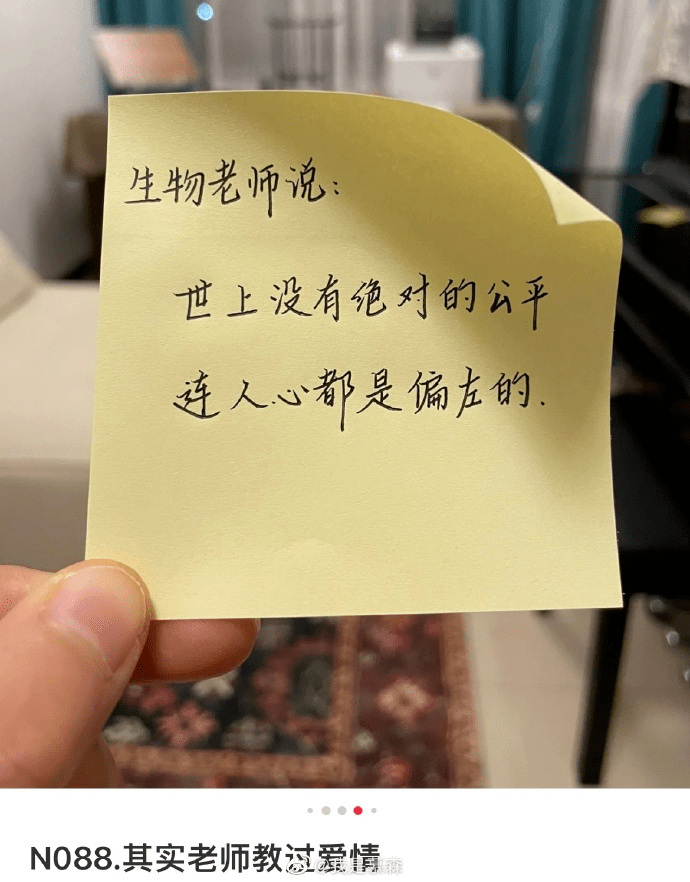 生物老师说:
世上没有绝对的公平
连人心都是偏左的.
N088.其实老师教过爱情